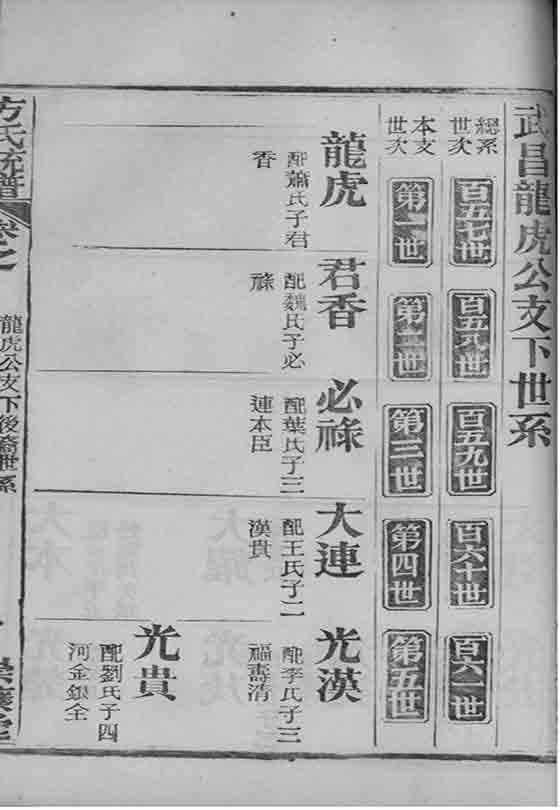 武昌龍虎公支下世系
總系世次
百五七世
百五八世
百五九世
百六十世
百六一世
本支世次
第一世
第二世
第三世
第四世
第五世
龍虎
配蕭氏子君
香
君香
配魏氏子必
祿
必祿
配葉氏子三
連本臣
大連
配王氏子二
漢貴
光漢
配李氏子三
福壽清
光貴
配劉氏子四
河金銀全
方氏統譜
卷之
龍虎公支下後裔世系